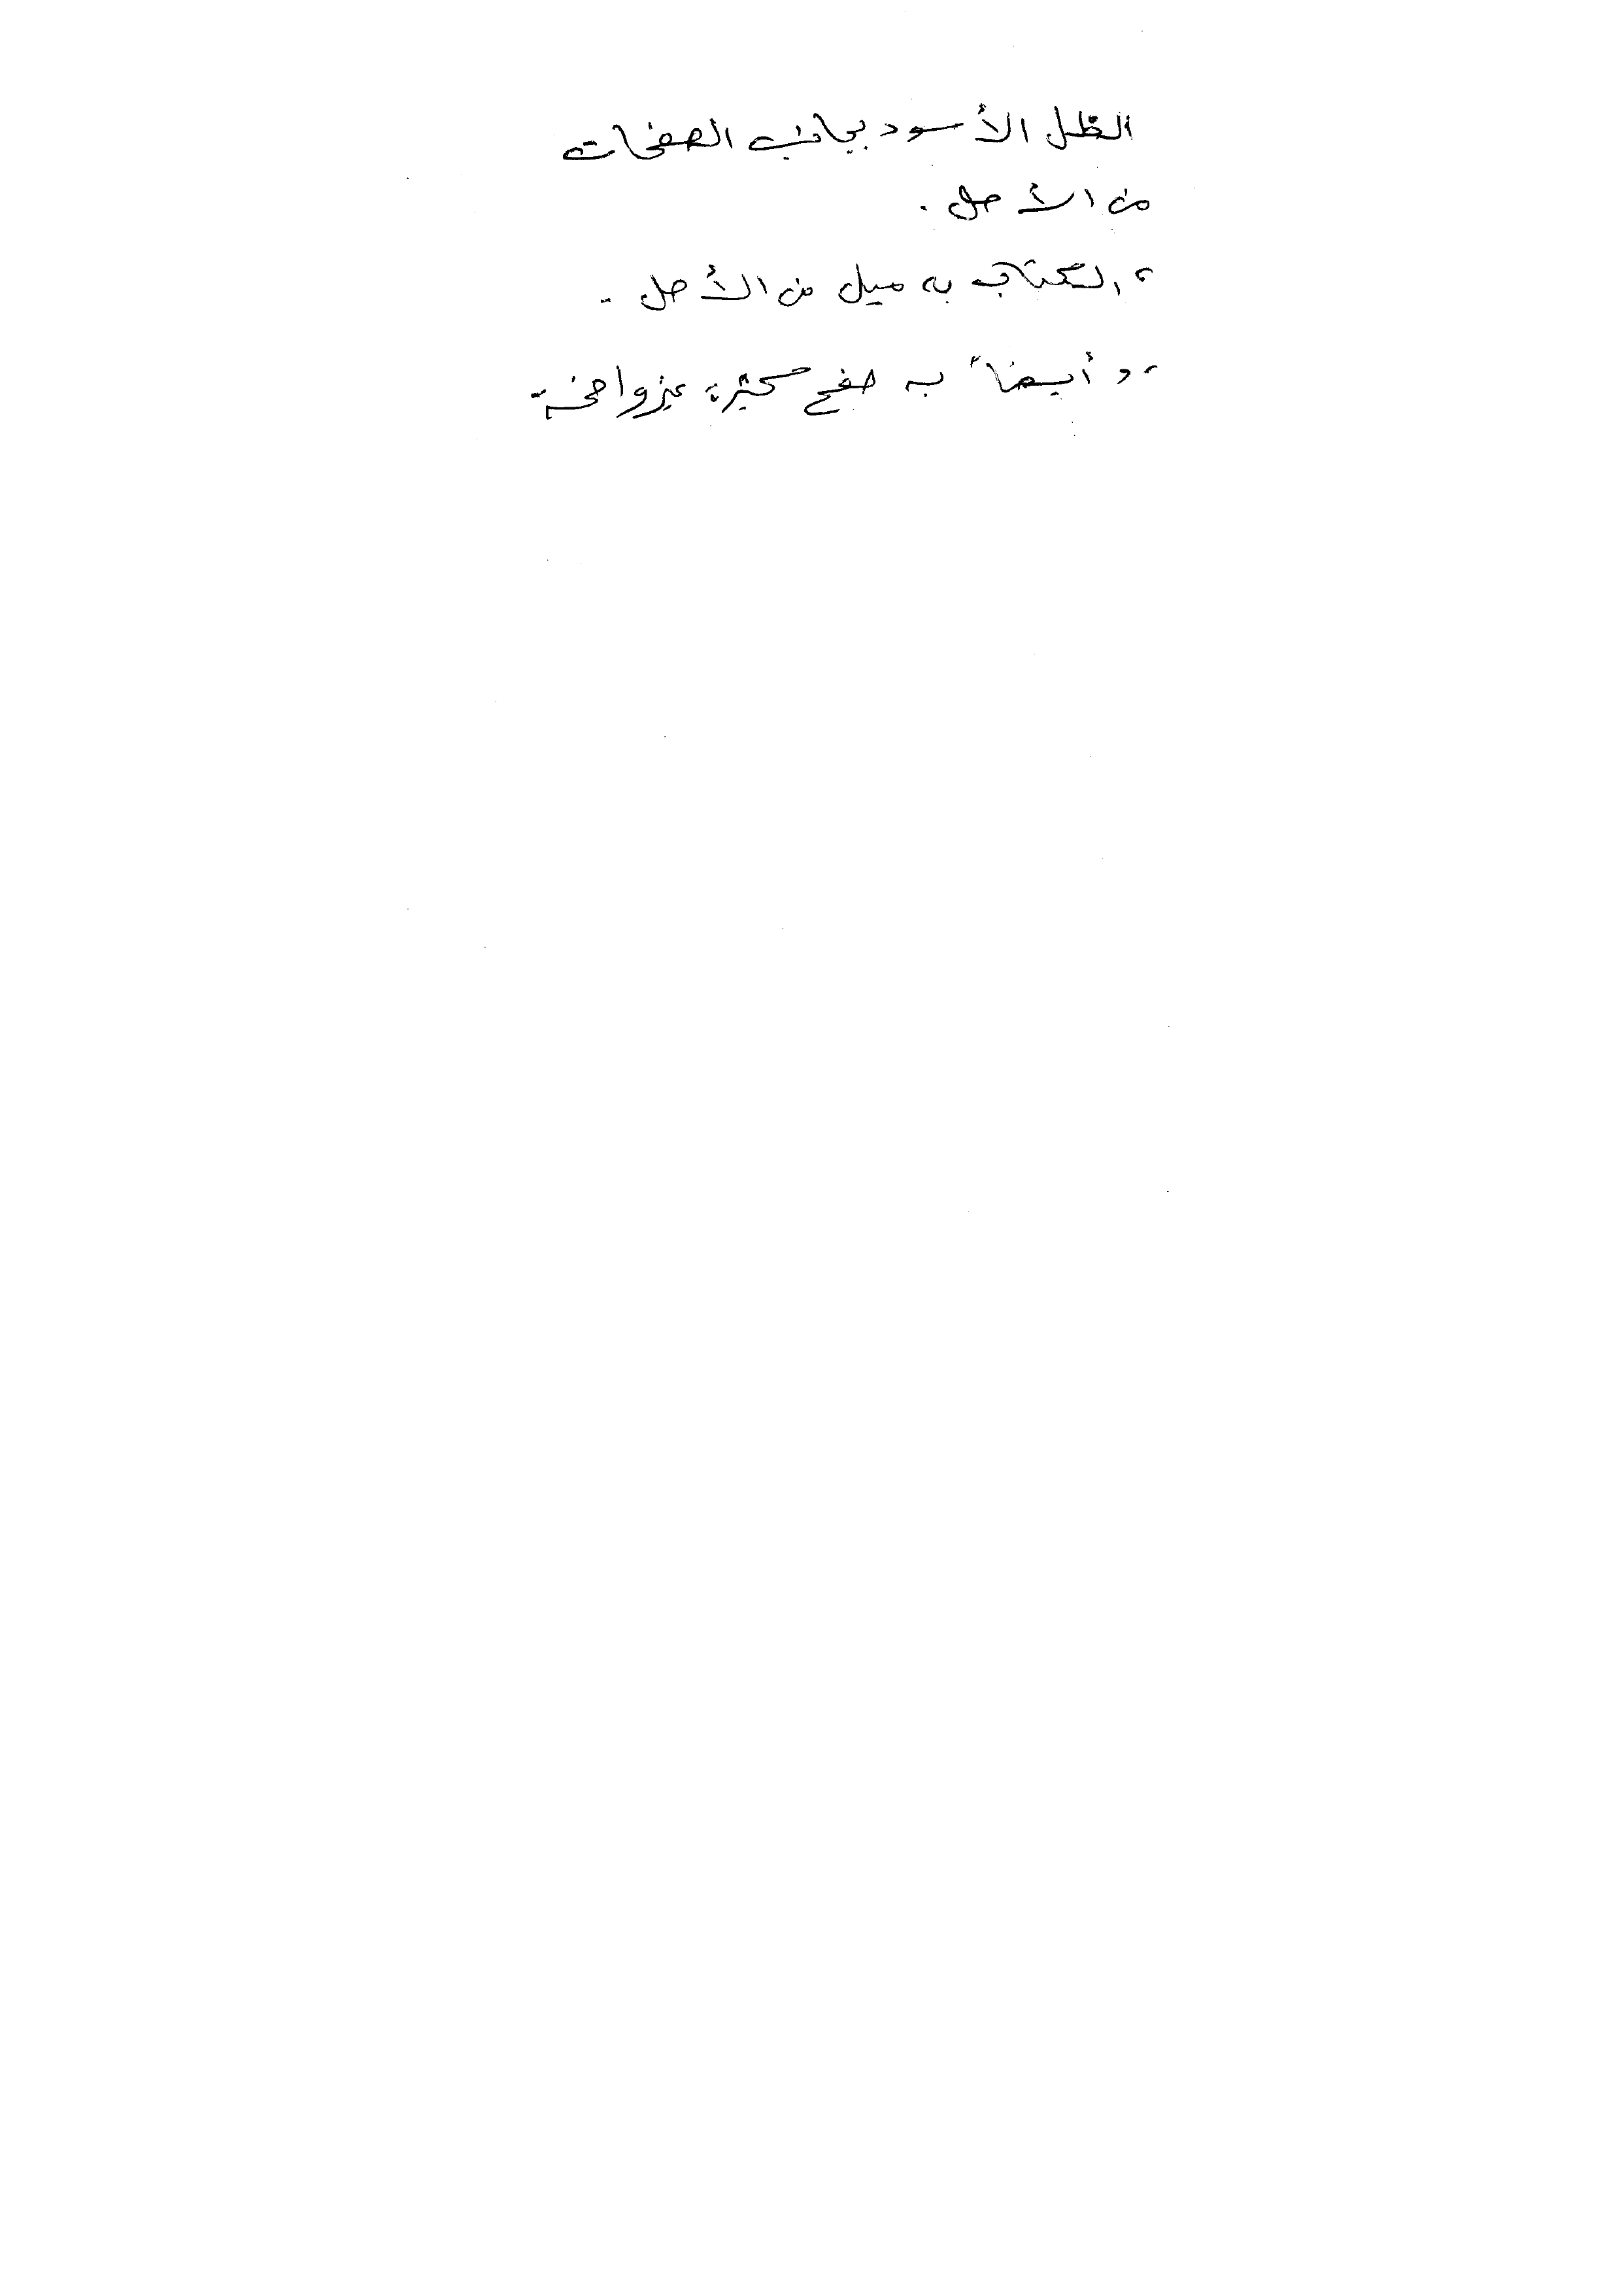 الظل الأسود بجانب الصفحات
من الأصل .
، الكتاب به ميل من الأصل .
، وأيضاً به صفح كثيرة غير واضحة